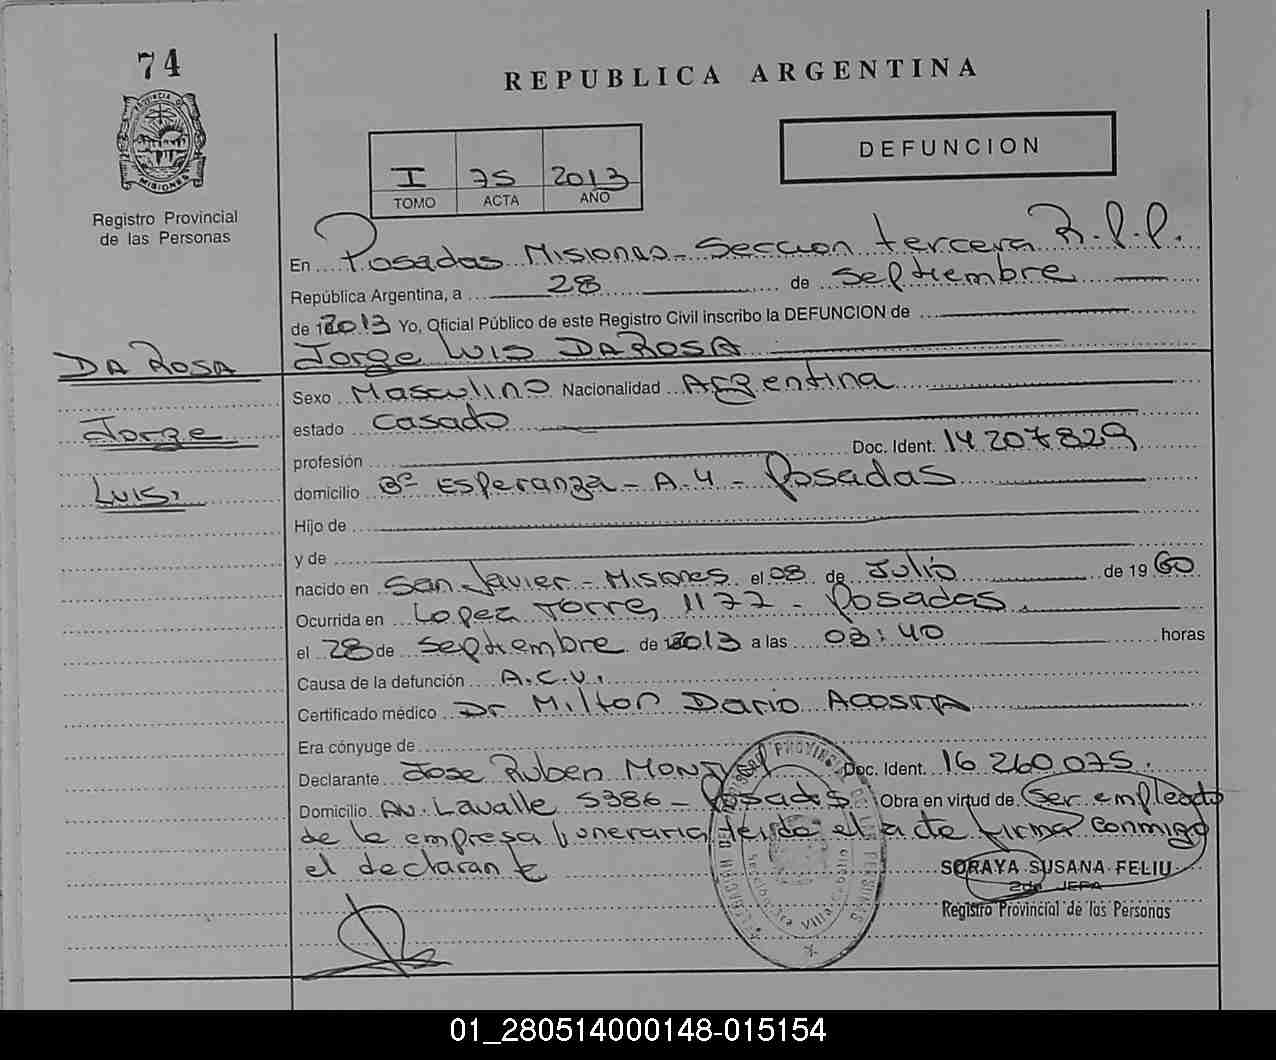 74
REPUBLICA ARGENTINA
PROVINCIA DE
MISIONES
Registro Provincial
de las Personas
DEFUNCION
I 75 2013
TOMO ACTA AÑO
En Posadas Misiones - Seccion tercera R.P.P.
República Argentina, a 28 de septiembre
de 1 2013 Yo, Oficial Público de este Registro Civil inscribo la DEFUNCION de
DA ROSA Jorge Luis DA ROSA
Sexo Masculino Nacionalidad Argentina
Jorge estado casado
profesión Doc. Ident. 14 207 829
Luis, domicilio Bº Esperanza - A-4 - Posadas
Hijo de
y de
nacido en San Javier - Misiones el 08 de Julio de 19 60
Ocurrida en Lopez Torres 1177 - Posadas.
el 28 de septiembre de 2013 a las 03:40 horas
Causa de la defunción A.C.V.
Certificado médico Dr Milton Dario Acosta
Era cónyuge de
Declarante Jose Ruben Doc. Ident. 16 260 075.
Domicilio Av. Lavalle 5386 - Posadas Obra en virtud de ser empleado
de la empresa funeraria leida el acta firma conmigo
el declarante
SORAYA SUSANA FELIU
2da JEFA
Registro Provincial de las Personas
01_280514000148-015154